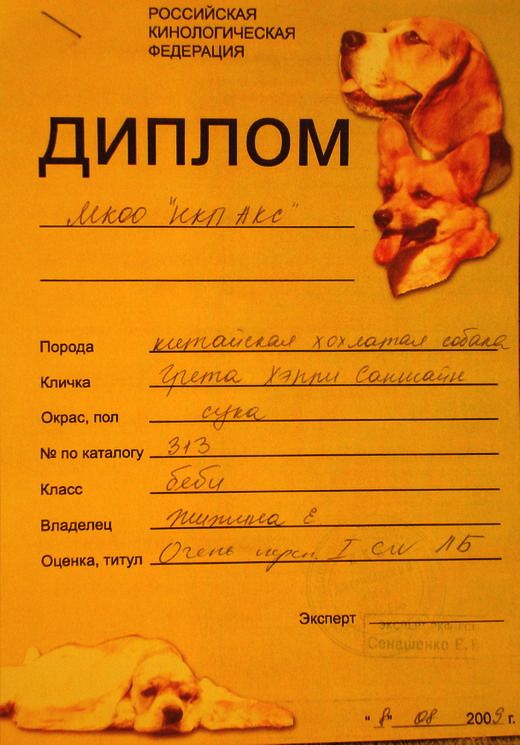 РОССИЙСКАЯ
КИНОЛОГИЧЕСКАЯ
ФЕДЕРАЦИЯ
ДИПЛОМ
МКОО "НКП АКС"
Порода китайская хохлатая собака
Кличка Грета Хэппи Саншайн
Окрас, пол сука
№ по каталогу 313
Класс беби
Владелец Е
Оценка, титул Очень персп. I CW ЛБ
Эксперт
Сенашенко Е.
"8" 08 2009 г.